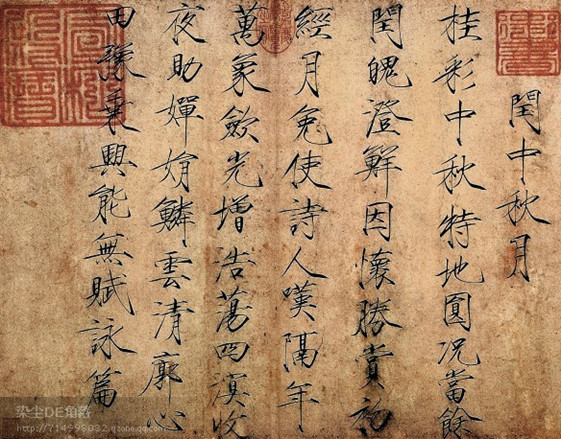 閏中秋月
桂彩中秋特地圓况當餘
閏魄澄鮮因懷勝賞初
經月免使詩人嘆隔年
萬象歛光增浩蕩四溟收
夜助嬋娟鱗雲清廓心
田豫乘興能無賦詠篇
染尘DE角落
http://714998022.qzone.qq.com